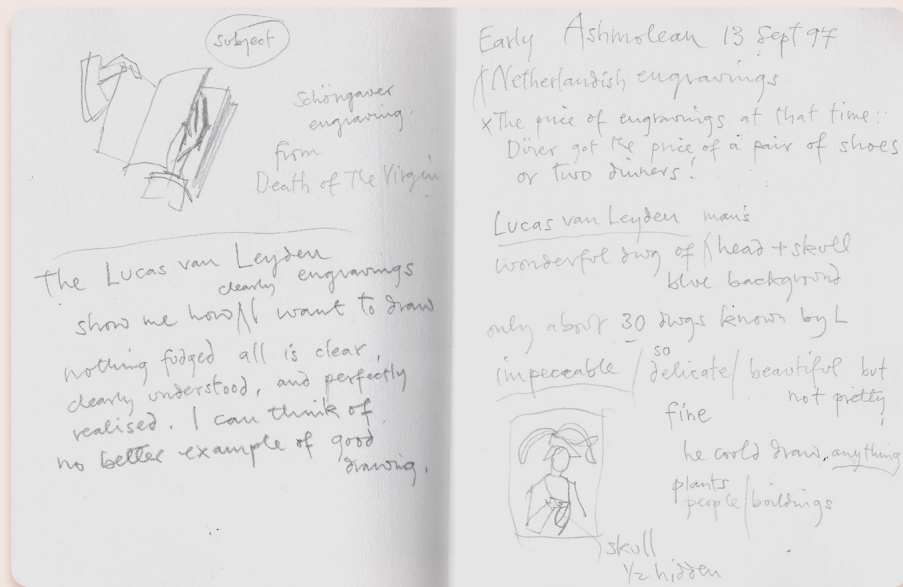 subject
Schöngaver
engraving.
from
Death of The Virgin
The Lucas van Leyden
clearly engravings
show me how I want to draw
nothing fudged all is clear,
clearly understood, and perfectly
realised. I can think of
no better example of good
drawing.
Early Ashmolean 13 Sept 97
Netherlandish engravings
x The price of engravings at that time:
Dürer got the price of a pair of shoes
or two dinners!
Lucas van Leyden man's
wonderful dwg of head + skull
blue background
only about 30 dwgs known by L
impeccable / so delicate / beautiful but
not pretty
fine
he could draw, anything
plants
people / buildings
skull
1/2 hidden